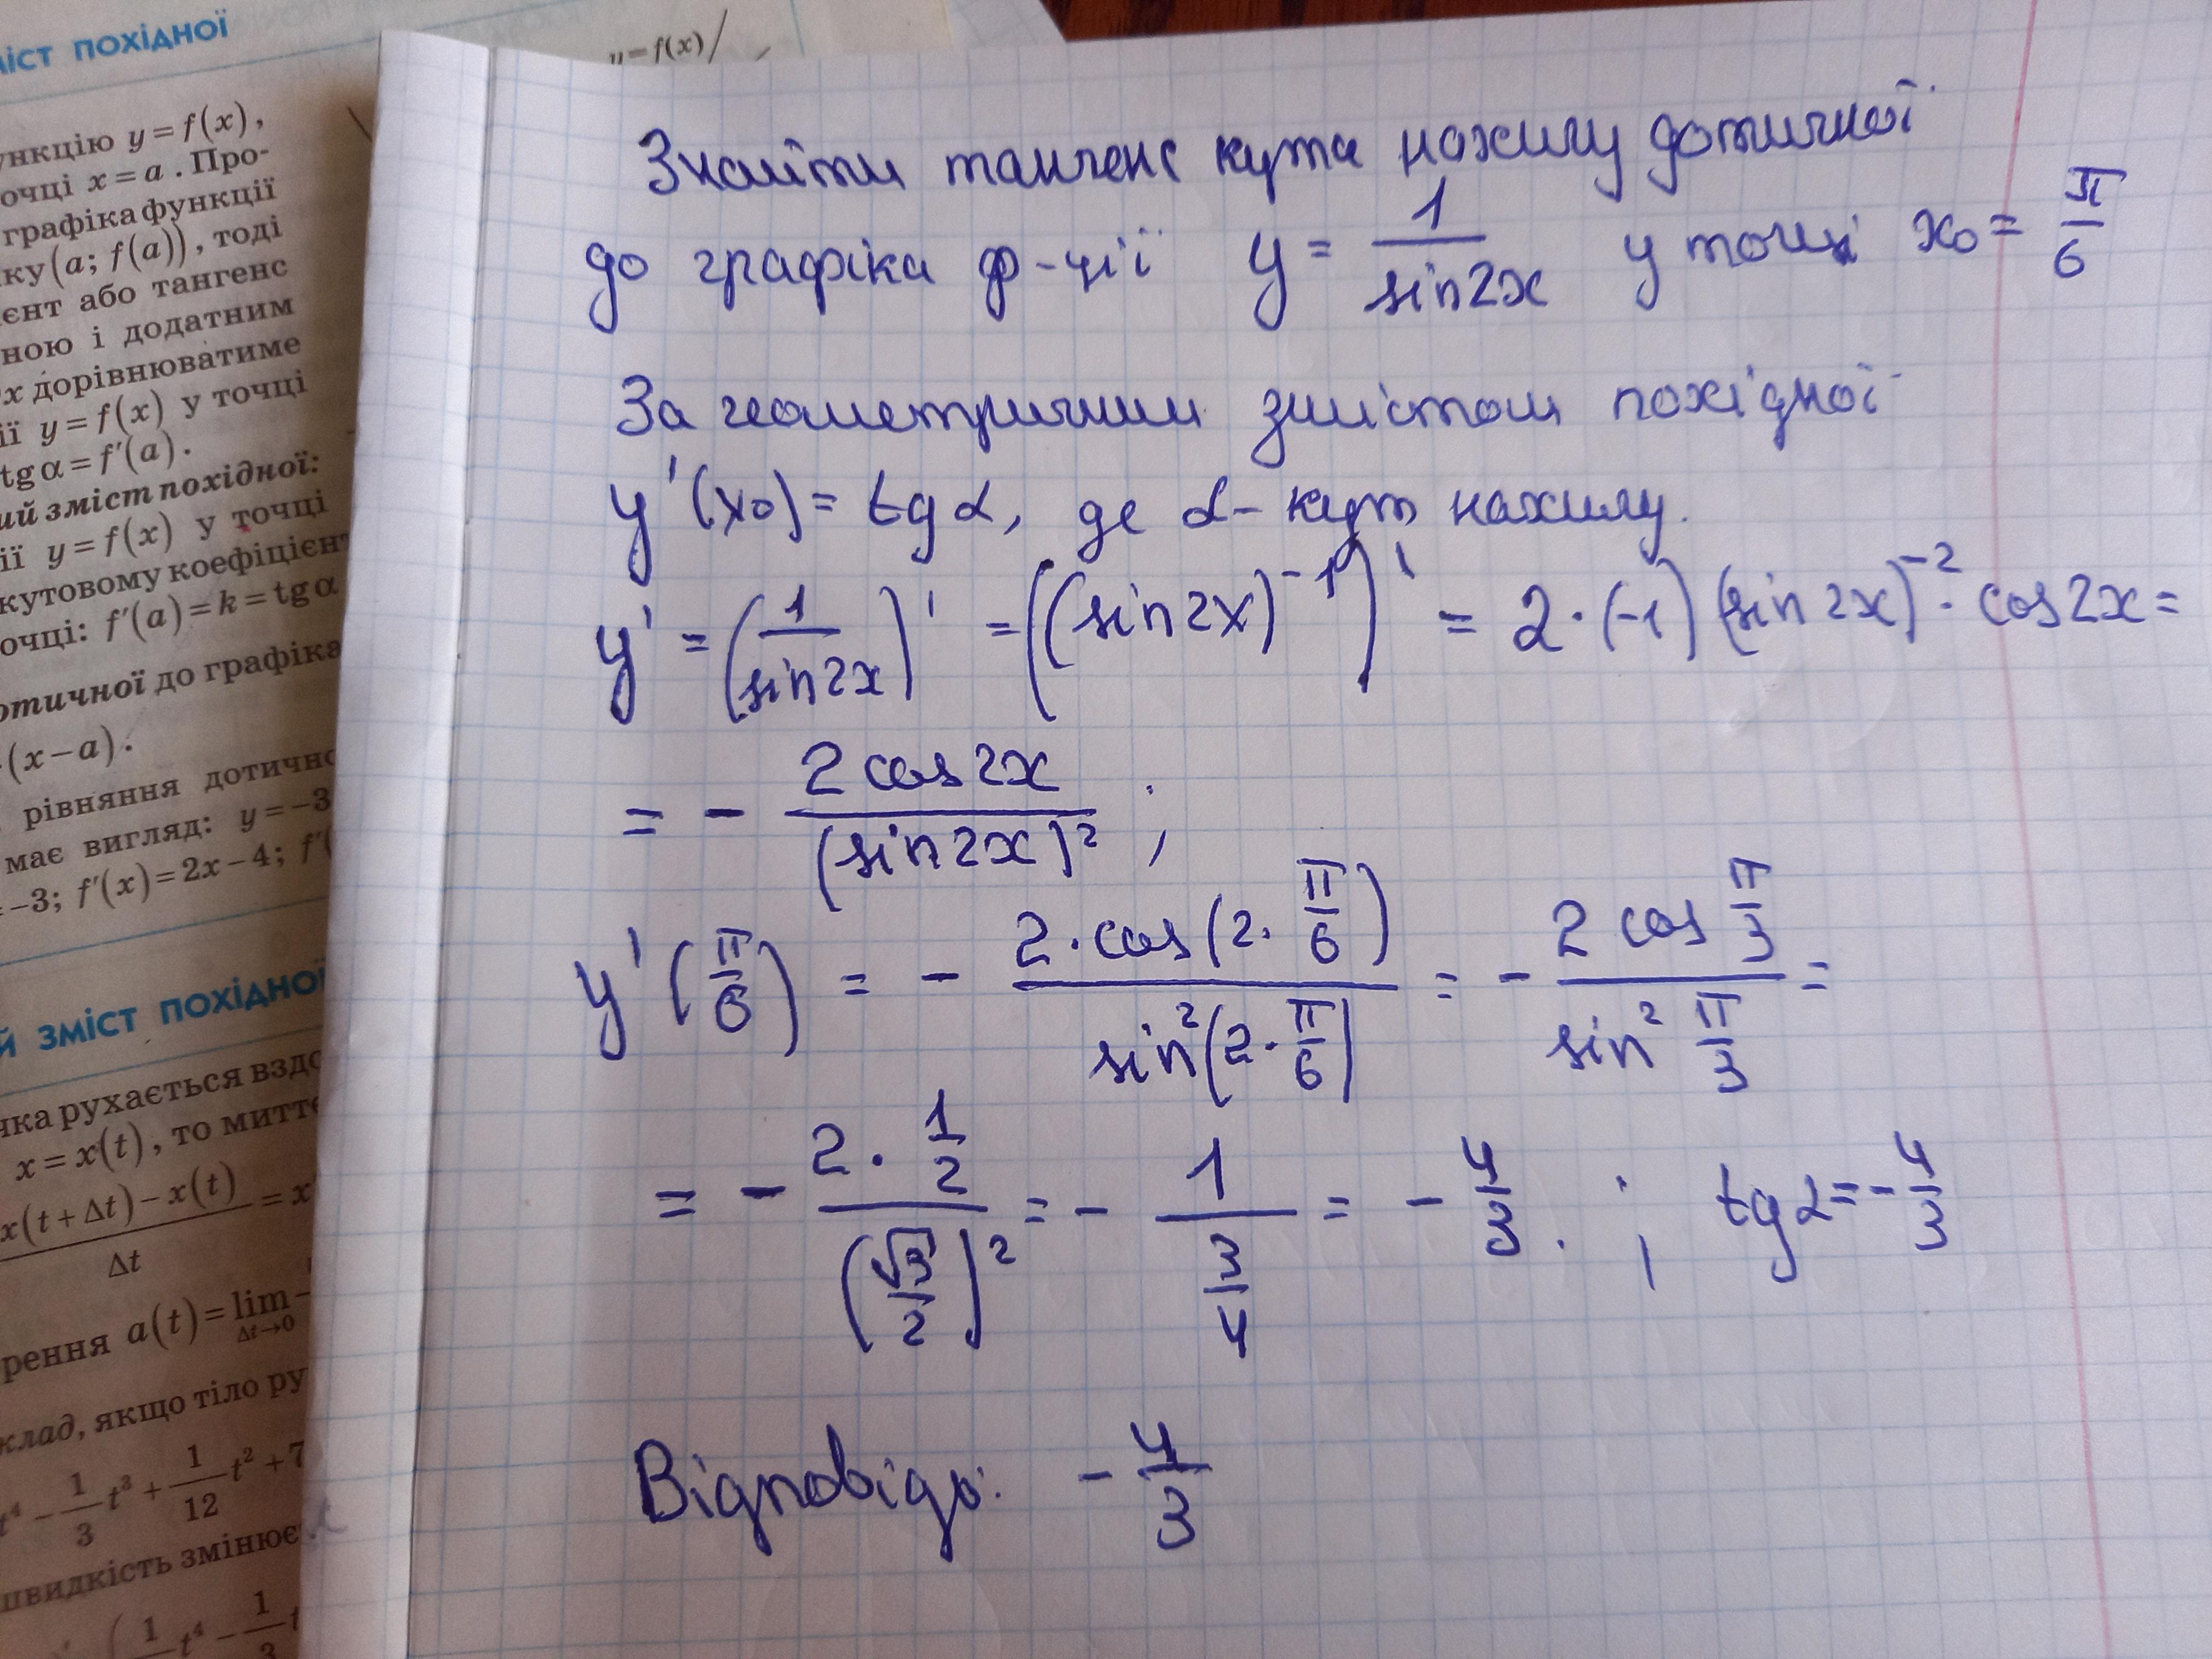 міст похідної
y=f(x)
функцію y=f(x),
точці x=a. Про-
графіка функції
(a; f(a)), тоді
або тангенс
і додатним
x дорівнюватиме
y=f(x) у точці
tgα=f′(a).
зміст похідної:
y=f(x) у точці
кутовому
точці: f′(a)=k=tgα
до графіка
(x−a).
рівняння
має вигляд: y=−3
−3; f′(x)=2x−4;
зміст похідної
рухається
x=x(t), то
x(t+Δt)−x(t)
Δt
a(t)=lim
Δt→0
якщо тіло
t⁴ − 1/3 t³ + 1/12 t² + 7
швидкість
1/4 t⁴ − 1/3 t
Знайти тангенс кута нахилу дотичної
до графіка ф-ції y = 1/sin2x у точці x₀ = π/6
За геометричним змістом похідної
y'(x₀) = tgα, де α - кут нахилу.
y' = (1/sin2x)' = ((sin2x)⁻¹)' = 2·(-1)(sin2x)⁻²·cos2x =
= - 2cos2x/(sin2x)² ;
y'(π/6) = - 2·cos(2·π/6)/sin²(2·π/6) = - 2cos π/3 / sin² π/3 =
= - 2·1/2 / (√3/2)² = - 1/(3/4) = - 4/3. ; tgα = - 4/3
Відповідь: - 4/3